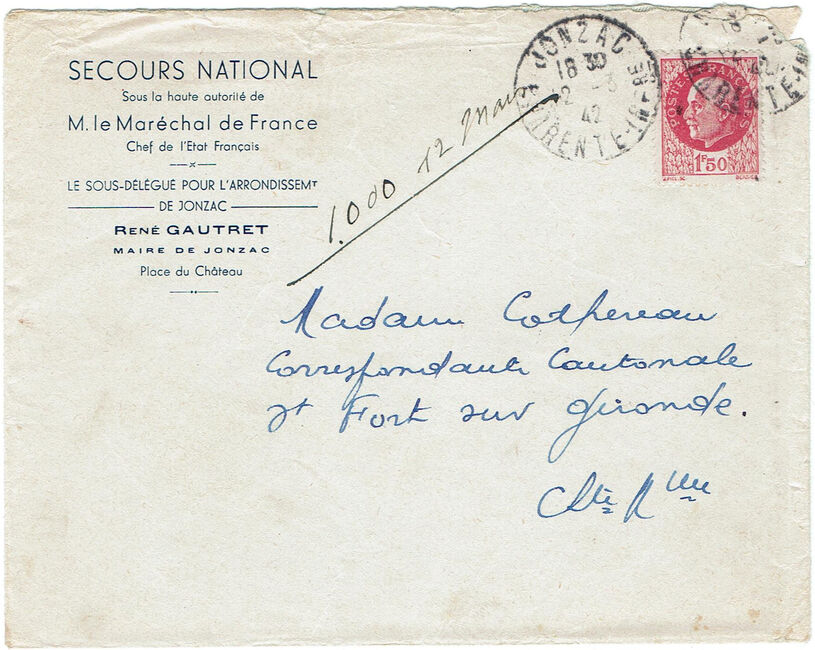 SECOURS NATIONAL
Sous la haute autorité de
M. le Maréchal de France
Chef de l'Etat Français
LE SOUS-DÉLÉGUÉ POUR L'ARRONDISSEMT
DE JONZAC
RENÉ GAUTRET
MAIRE DE JONZAC
Place du Château
JONZAC
18 30
12 - 3
42
CHARENTE-INFRE
POSTES FRANÇAISES
1F50
1.000 12 Mars
Madame Cothereau
Correspondante Cantonale
St Fort sur Gironde.
Chte Rme